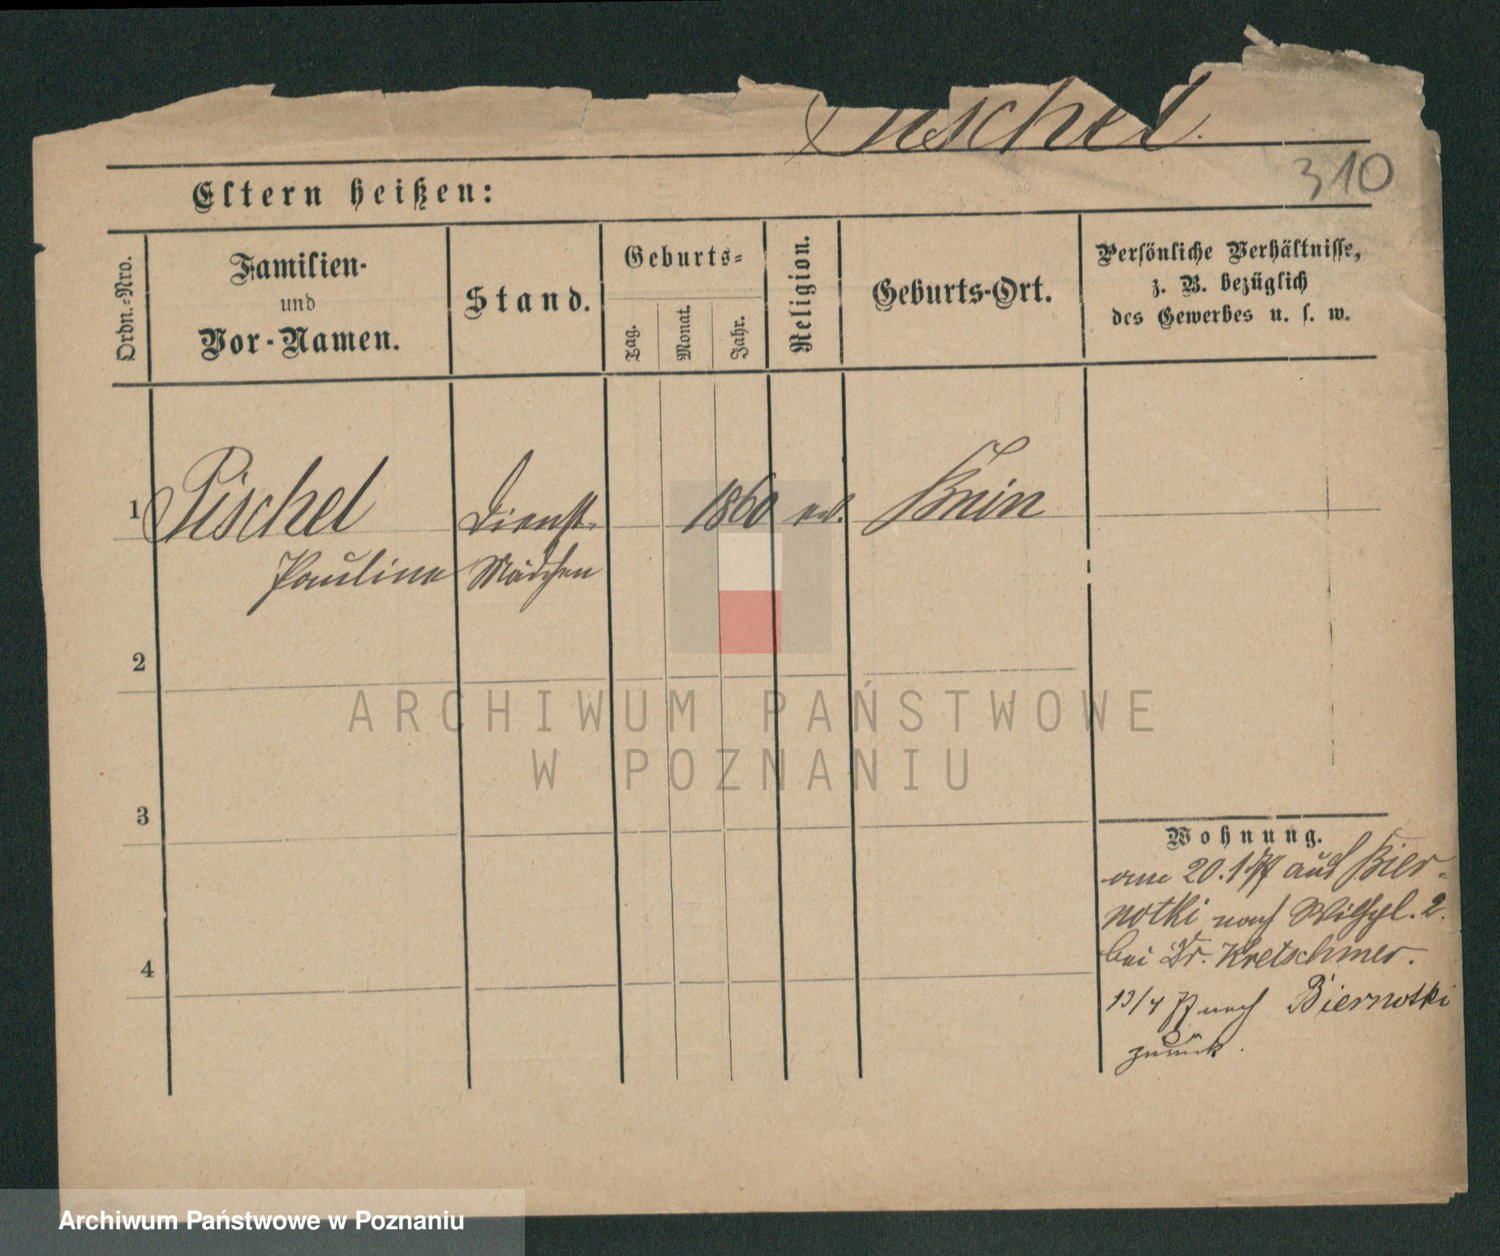 Pischel.
310
Eltern heißen:
Ordn.-Nro.
Familien-
und
Vor-Namen.
Stand.
Geburts-
Tag.
Monat.
Jahr.
Religion.
Geburts-Ort.
Persönliche Verhältnisse,
z. B. bezüglich
des Gewerbes u. s. w.
1 Pischel Dienst- 1860 ev. Knin
Pauline Mädchen
2
3
4
Wohnung.
am 20.1 77 aus Bier-
notki nach Wilhpl. 2.
bei Dr. Kretschmer.
13/4 77 nach Biernotki
zurück.
ARCHIWUM PAŃSTWOWE
W POZNANIU
Archiwum Państwowe w Poznaniu